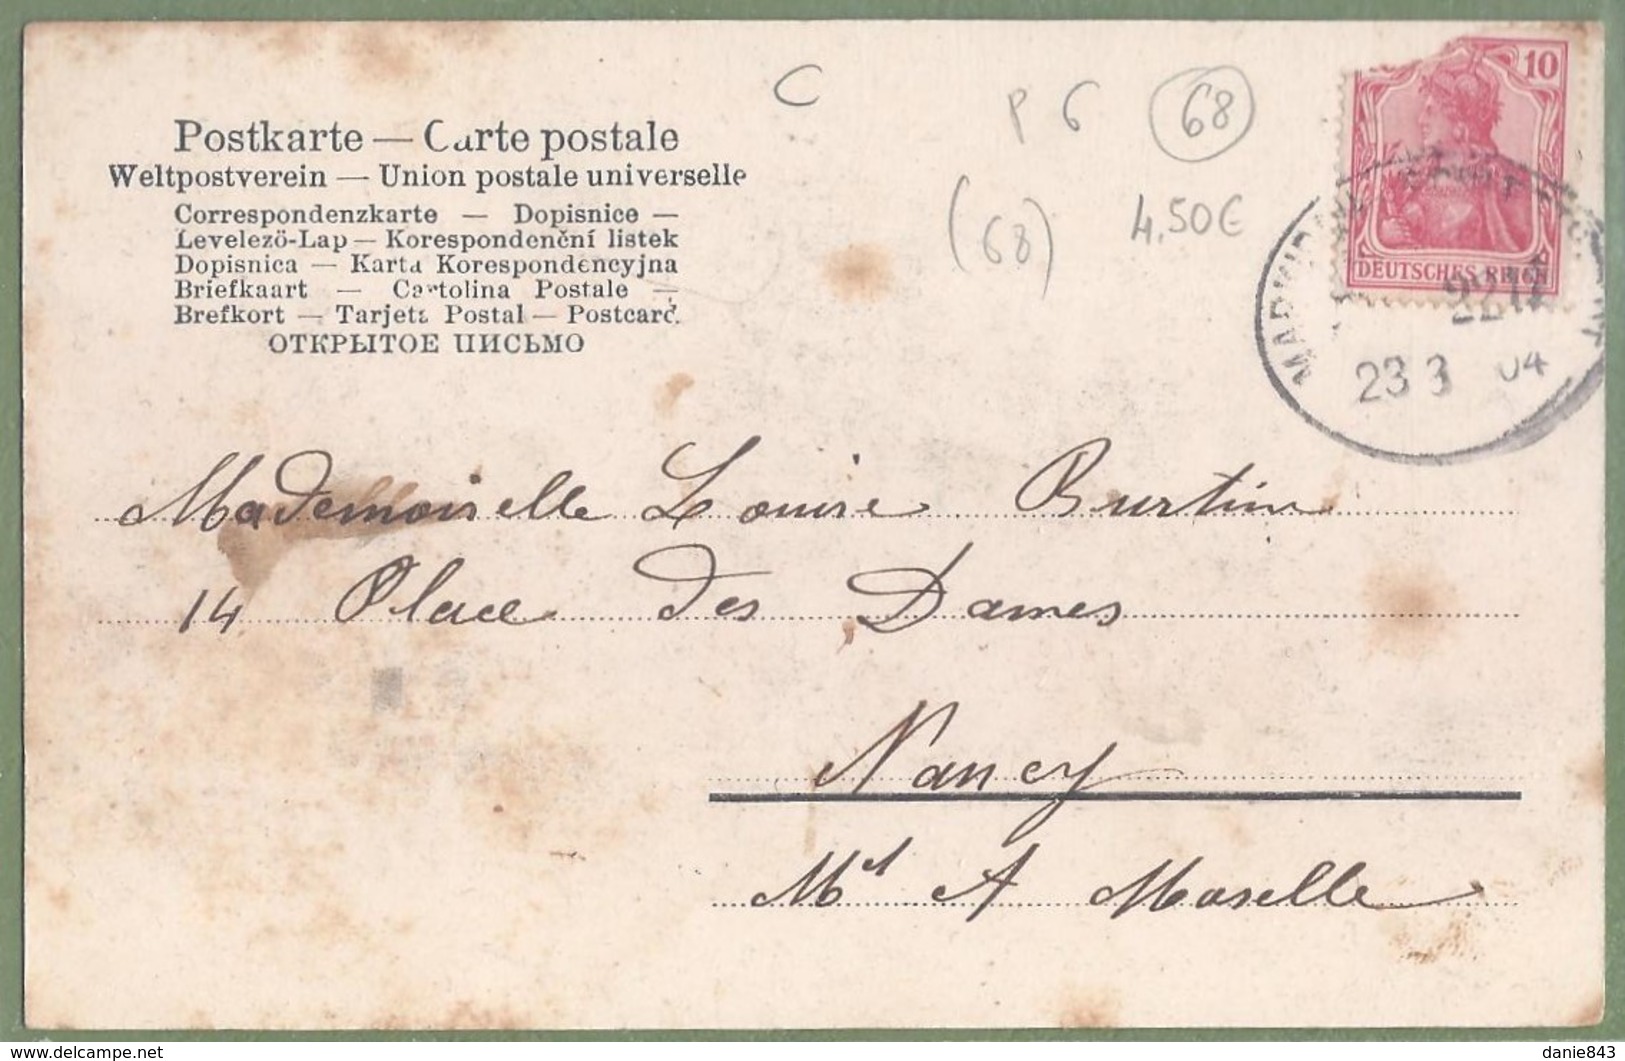 C
P 6 68
(68) 4,50€
10
DEUTSCHES REICH
23 3 04
Postkarte — Carte postale
Weltpostverein — Union postale universelle
Correspondenzkarte — Dopisnice —
Levelező-Lap — Korespondenční listek
Dopisnica — Karta Korespondencyjna
Briefkaart — Cartolina Postale —
Brefkort — Tarjeta Postal — Postcard.
ОТКРЫТОЕ ПИСЬМО
Mademoiselle Louise Burtin
14 Place des Dames
Nancy
Mt A Moselle
delcampe.net
danie843